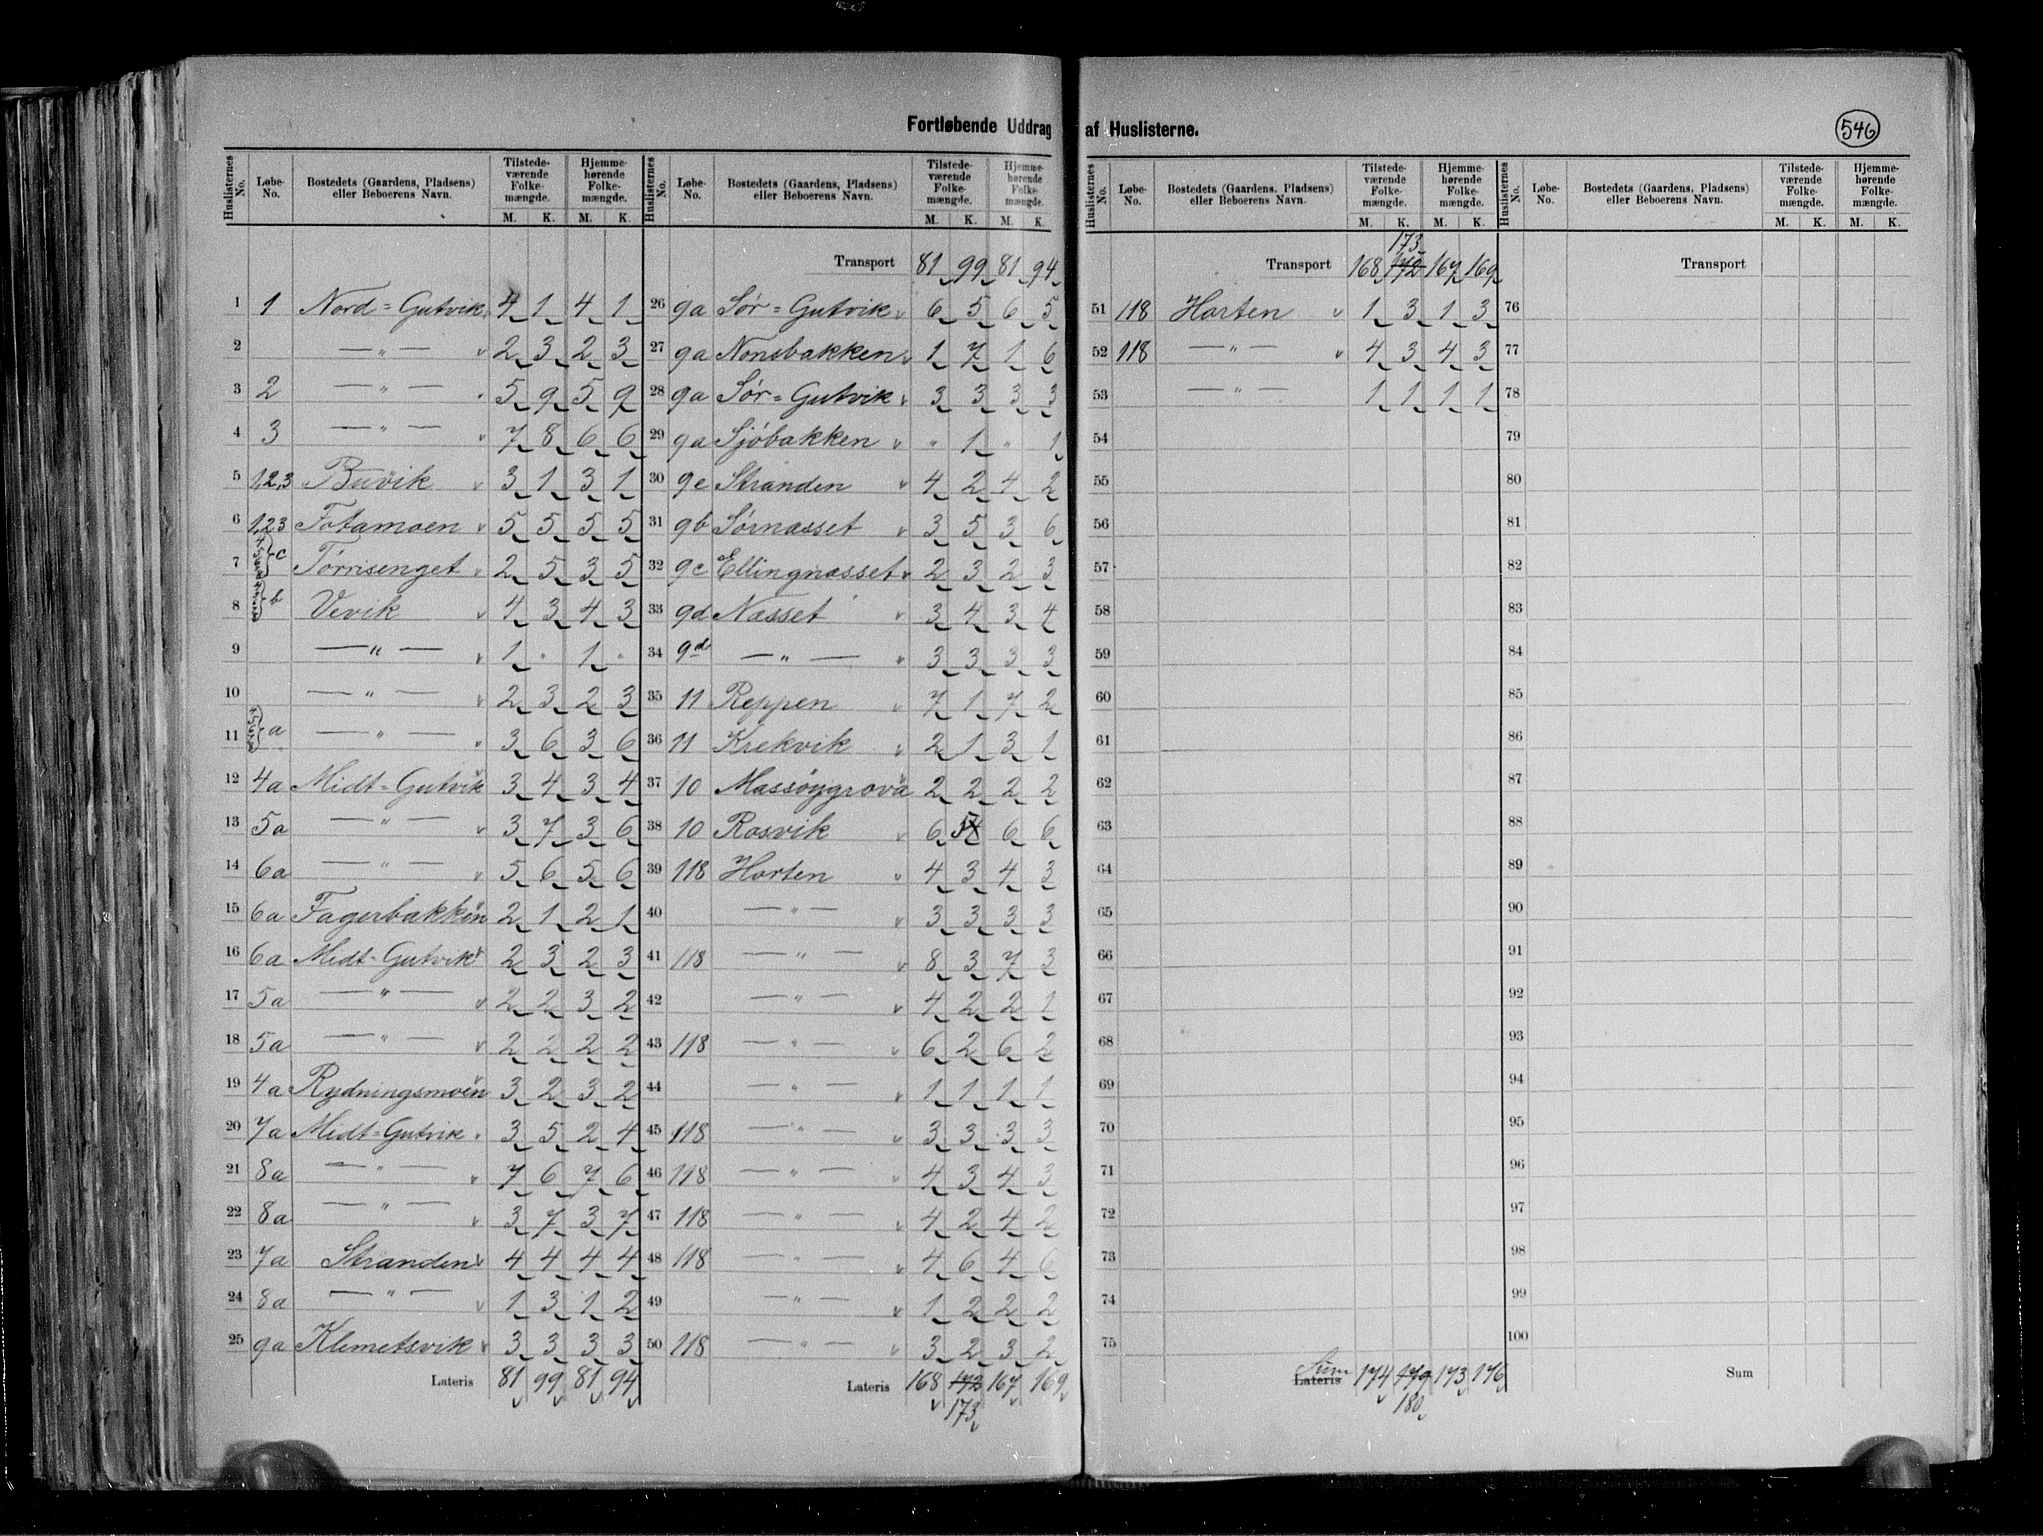 Fortløbende Uddrag af Huslisterne.
546
Huslisternes No. Løbe-No. Bostedets (Gaardens, Pladsens) eller Beboerens Navn. Tilstede-værende Folke-mængde. M. K. Hjemme-hørende Folke-mængde. M. K.
1 1 Nord=Gutvik 4 1 4 1
2 —„— 2 3 2 3
3 2 —„— 5 9 5 9
4 3 —„— 7 8 6 6
5 1,2,3 Buvik 3 1 3 1
6 1,2,3 Fotamoen 5 5 5 5
7 c Tørrisenget 2 5 3 5
8 b Vevik 4 3 4 3
9 —„— 1 „ 1 „
10 —„— 2 3 2 3
11 a —„— 3 6 3 6
12 4a Midt=Gutvik 3 4 3 4
13 5a —„— 3 7 3 6
14 6a —„— 5 6 5 6
15 6a Fagerbakken 2 1 2 1
16 6a Midt-Gutvik 2 3 2 3
17 5a —„— 2 2 3 2
18 5a —„— 2 2 2 2
19 4a Rydningsmoen 3 2 3 2
20 7a Midt=Gutvik 3 5 2 4
21 8a —„— 7 6 7 6
22 8a —„— 3 7 3 7
23 7a Stranden 4 4 4 4
24 8a —„— 1 3 1 2
25 9a Klemetsvik 3 3 3 3
Lateris 81 99 81 94
Huslisternes No. Løbe-No. Bostedets (Gaardens, Pladsens) eller Beboerens Navn. Tilstede-værende Folke-mængde. M. K. Hjemme-hørende Folke-mængde. M. K.
Transport 81 99 81 94
26 9a Sør=Gutvik 6 5 6 5
27 9a Nonsbakken 1 7 1 6
28 9a Sør=Gutvik 3 3 3 3
29 9a Sjöbakken „ 1 „ 1
30 9e Stranden 4 2 4 2
31 9b Sørnæsset 3 5 3 6
32 9c Ellingnæsset 2 3 2 3
33 9d Næsset 3 4 3 4
34 9d —„— 3 3 3 3
35 11 Reppen 7 1 7 2
36 11 Krekvik 2 1 3 1
37 10 Massöygrova 2 2 2 2
38 10 Rosvik 6 5 6 6
39 118 Horten 4 3 4 3
40 —„— 3 3 3 3
41 118 —„— 8 3 7 3
42 —„— 4 2 2 1
43 118 —„— 6 2 6 2
44 —„— 1 1 1 1
45 118 —„— 3 3 3 3
46 118 —„— 4 3 4 3
47 118 —„— 4 2 4 2
48 118 —„— 4 6 4 6
49 —„— 1 2 2 2
50 118 —„— 3 2 3 2
Lateris 168 172 167 169
173
Huslisternes No. Løbe-No. Bostedets (Gaardens, Pladsens) eller Beboerens Navn. Tilstede-værende Folke-mængde. M. K. Hjemme-hørende Folke-mængde. M. K.
173
Transport 168 172 167 169
51 118 Horten 1 3 1 3
52 118 —„— 4 3 4 3
53 —„— 1 1 1 1
54
55
56
57
58
59
60
61
62
63
64
65
66
67
68
69
70
71
72
73
74
75
Sum
Lateris 174 179 173 176
180
Huslisternes No. Løbe-No. Bostedets (Gaardens, Pladsens) eller Beboerens Navn. Tilstede-værende Folke-mængde. M. K. Hjemme-hørende Folke-mængde. M. K.
Transport
76
77
78
79
80
81
82
83
84
85
86
87
88
89
90
91
92
93
94
95
96
97
98
99
100
Sum